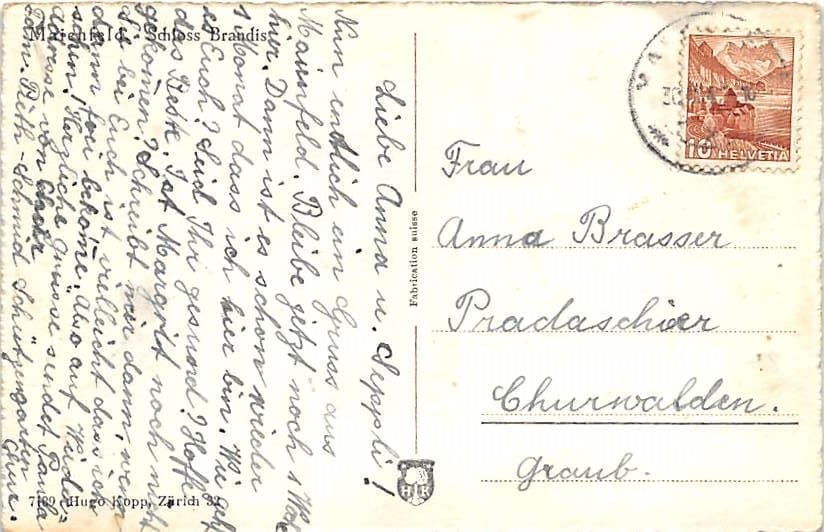 Maienfeld. Schloss Brandis.
Liebe Anna u. Seppli!
Nun endlich ein Gruss aus
Maienfeld. Bleibe jetzt noch 1 Woche
hier. Dann ist es schon wieder
1 Monat dass ich hier bin. Wie geht
es Euch? Seid Ihr gesund? Hoffe
das Beste. Ist Margrit noch nicht
gekommen? Schreibt mir dann, wen
Sie bei Euch ist vielleicht dass ich
dann frei bekomme. Also auf Wieder-
sehen! Herzliche Grüsse sendet Paula
Adresse von Chur
Fam. Schmid Schützengarten
Chur.
7189 Hugo Kopp, Zürich 32
Fabrication suisse
HK
10 HELVETIA
Frau
Anna Brasser
Pradaschier
Churwalden.
Graub.